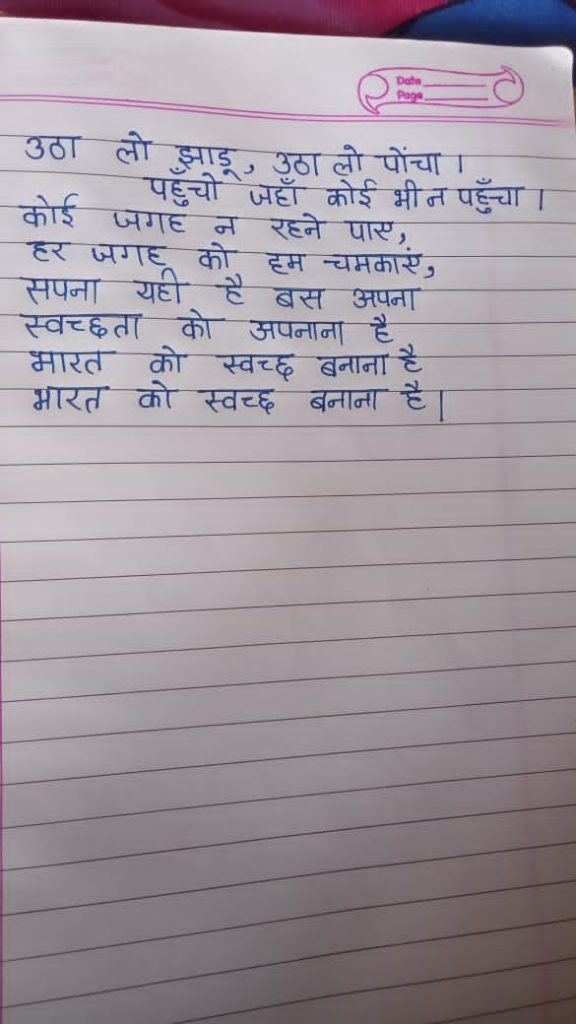 Date
Page
उठा लो झाड़ू, उठा लो पोंचा ।
पहुँचो जहाँ कोई भी न पहुँचा ।
कोई जगह न रहने पाए,
हर जगह को हम चमकाएं,
सपना यही है बस अपना
स्वच्छता को अपनाना है
भारत को स्वच्छ बनाना है
भारत को स्वच्छ बनाना है|